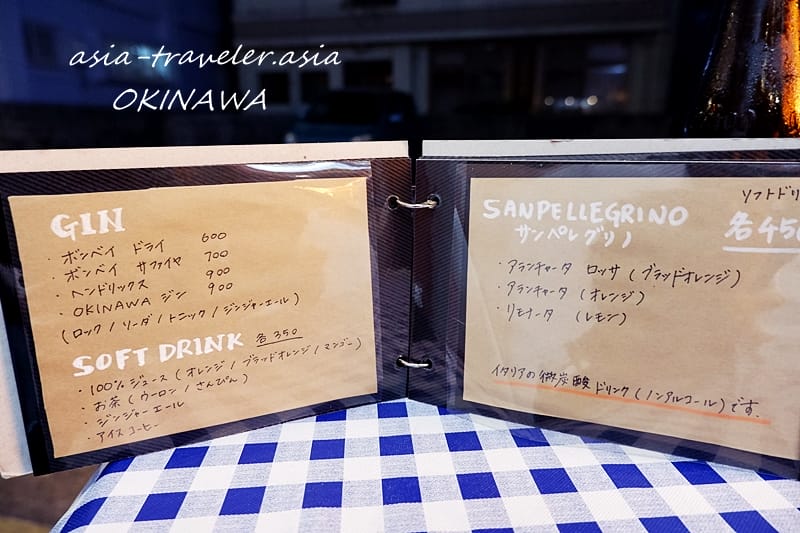 asia-traveler.asia
OKINAWA
GIN
・ボンベイ ドライ 600
・ボンベイ サファイヤ 700
・ヘンドリックス 900
・OKINAWA ジン 900
(ロック / ソーダ / トニック / ジンジャーエール)
SOFT DRINK 各350
・100%ジュース (オレンジ / ブラッドオレンジ / マンゴー)
・お茶 (ウーロン / さんぴん)
・ジンジャーエール
・アイスコーヒー
ソフトドリ
SANPELLEGRINO 各450
サンペレグリノ
・アランチャータ ロッサ (ブラッドオレンジ)
・アランチャータ (オレンジ)
・リモナータ (レモン)
イタリアの微炭酸ドリンク (ノンアルコール) です.